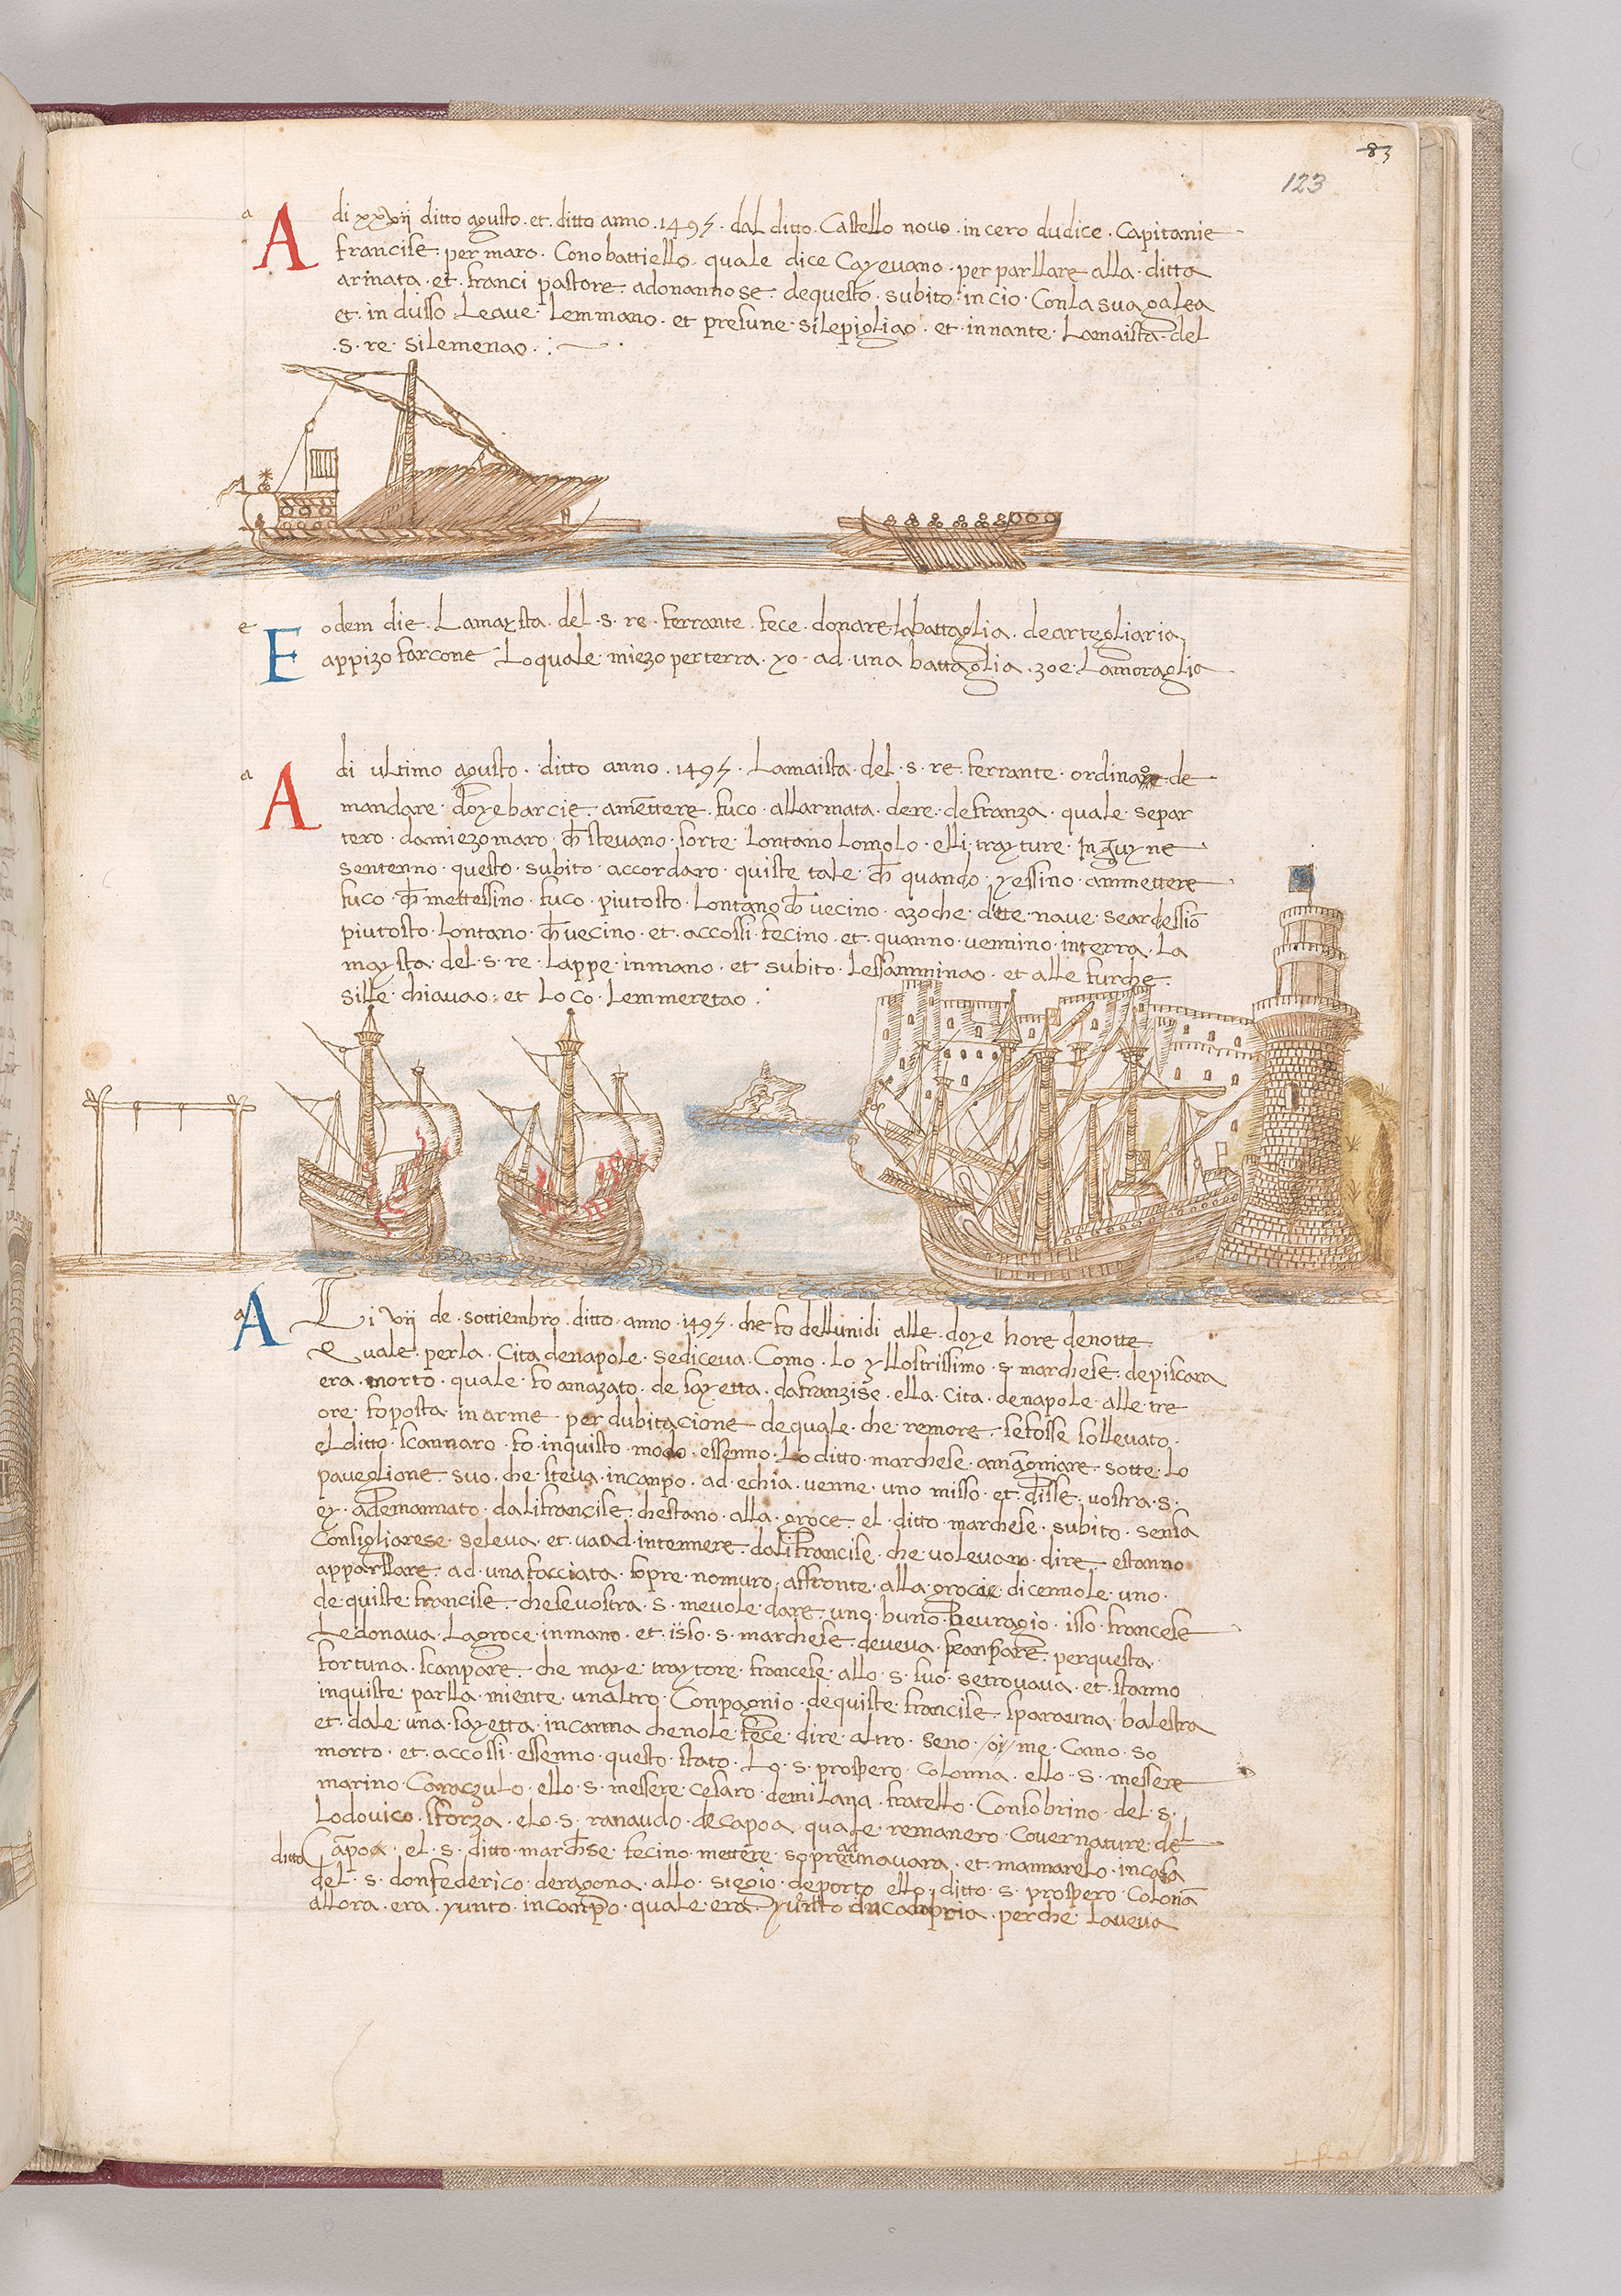 83
123
a
A di xxvij ditto agusto · et · ditto anno · 1495 · dal ditto · Castello novo · incero dudice · Capitanie
francise · per maro · Cono battiello · quale dice Cayevano · per parllare alla · ditta
armata · et · franci pastore · adonannose · dequesto · subito · in cio · Conla sua galea
et · in dusso · Leave · Lemmano · et presune · silepigliao · et · innante · Lamaista · del
· s · re · silemenao · : —
e
E odem die · Lamaysta · del · s · re · ferrante · fece · donare · La battaglia · deartegliaria
appizo farcone · Loquale · miezo per terra · yo · ad · una battaglia · zoe · Lamoraglia
a
A di ultimo agusto · ditto anno · 1495 · Lamaista · del · s · re · ferrante · ordinao · de
mandare · doye barcie · amettere · fuco · allarmata · dere · defranza · quale · separ
tero · da miezo maro · che stevano · forte · Lontano Lomolo · elli · trayture · In guyne
sentenno · questo · subito · accordaro · quiste tale · che quando · yessino · ammettere
fuco · che mettessino · fuco · piutosto · Lontano che vecino · azoche · ditte · nave · seardessino
piutosto · Lontano · che vecino · et · accossi · fecino · et · quanno · vennino · interra · La
maysta · del · s · re · Lappe · inmano · et subito · Lessamminao · et alle furche ·
sille · chiavao · et Loco · Lemmeretao ·
a
A Li vij de · settiembro · ditto · anno · 1495 · che fo dellunidi alle · doye hore denotte
Quale · perla · Cita denapole · sediceva · Como · Lo yllostrissimo · s · marchese · depiscara
era · morto · quale · fo amazato · de sayetta · dafranzise · ella · Cita · denapole · alle · tre
ore · foposta in arme · per dubitacione · dequale · che · remore · sefosse sollevato ·
el ditto · scannaro · fo · inquisto · modo · essenno · Lo ditto · marchese · amagniare · sotte · Lo
paveglione suo · che · steva · incanpo · ad · echia · venne · uno misso · et · disse · vostra · s ·
ey · ademannato · dalifrancise · chestano · alla · groce · el · ditto · marchese · subito · sensa
Consigliarese · seleva · et · va ad · intennere · dalifrancise · che · volevano · dire · estanno
apparllare · ad · una facciata · sopre · nomuro · affronte · alla · grocie · dicennole · uno ·
de quiste · francise · chesevostra · s · mevole · dare · uno · buno beuragio · isso · francese
Ledonava · Lagroce · inmano · et · isso · s · marchese · deveva · scanpare · perquesta ·
fortuna · scanpare · che may e traytore · francese · allo · s · suo · setrovava · et · stanno
inquiste · parlla · miente · unaltro · Conpagnio · dequiste · francise · spara una · balestra
et · dale · una · sayetta · incanna chenole · fece · dire · altro · seno · oy me · Como · so
morto · et · accossi · essenno · questo · stato · Lo · s · prospero · Colonna · ello · s · messere
marino · Caraczulo · ello · s · messere · cesaro · demilana · fratello · Consobrino · del · s ·
Lodovico · sforza · elo · s · ranaudo · decapoa · quale · remanero · Covernature · del
ditto Capoa · el · s · ditto · marchese · fecino · mettere · sopre una vara · et · mannarelo · incasa
del · s · donfederico · deragona · allo · segio · deporto · ello · ditto · s · prospero · Colonna
allora · era · yunto · incanpo · quale · era yunto · perche · Laveva